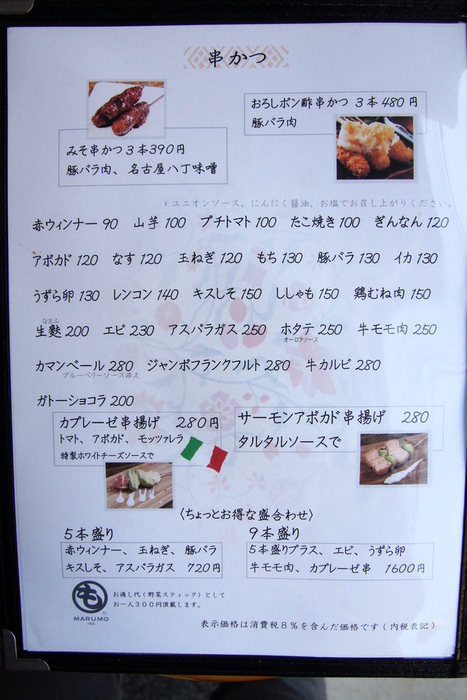 串かつ
おろしポン酢串かつ 3本480円
豚バラ肉
みそ串かつ3本390円
豚バラ肉、名古屋八丁味噌
ユニオンソース、にんにく醤油、お塩でお召し上がりください。
赤ウィンナー 90 山芋 100 プチトマト 100 たこ焼き 100 ぎんなん 120
アボカド 120 なす 120 玉ねぎ 120 もち 130 豚バラ 130 イカ 130
うずら卵 130 レンコン 140 キスしそ 150 ししゃも 150 鶏むね肉 150
なまふ
生麩 200 エビ 230 アスパラガス 250 ホタテ 250 牛モモ肉 250
オーロラソース
カマンベール 280 ジャンボフランクフルト 280 牛カルビ 280
ブルーベリーソース添え
ガトーショコラ 200
カプレーゼ串揚げ 280円
トマト、アボカド、モッツァレラ
特製ホワイトチーズソースで
サーモンアボカド串揚げ 280
タルタルソースで
〈ちょっとお得な盛合わせ〉
5本盛り
赤ウィンナー、玉ねぎ、豚バラ
キスしそ、アスパラガス 720円
9本盛り
5本盛りプラス、エビ、うずら卵
牛モモ肉、カプレーゼ串 1600円
も
MARUMO
お通し代(野菜スティック)として
お一人300円頂戴します。
表示価格は消費税8%を含んだ価格です(内税表記)